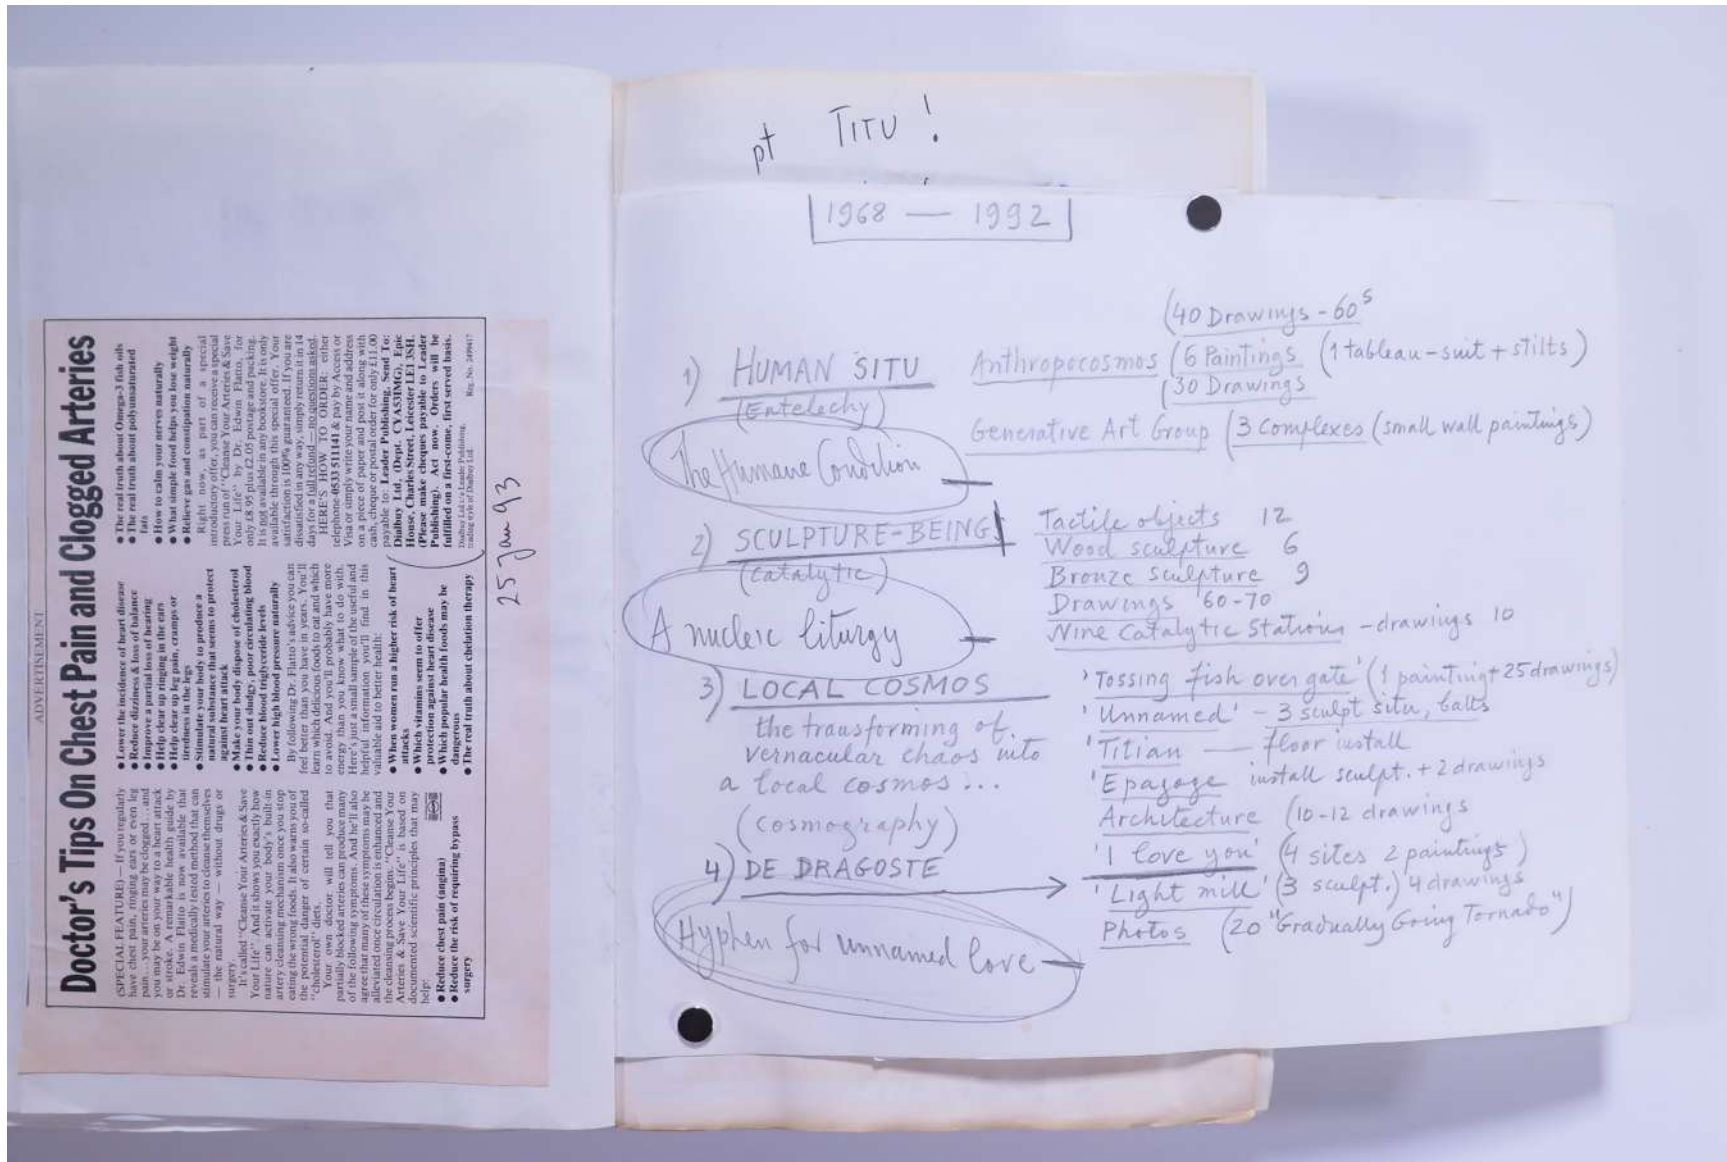 ADVERTISEMENT
Doctor's Tips On Chest Pain and Clogged Arteries
(SPECIAL FEATURE) — If you regularly
have chest pain, ringing ears or even leg
pain... your arteries may be clogged... and
you may be on your way to a heart attack
or stroke. A remarkable health guide by
Dr. Edwin Flatto is now available that
reveals a medically tested method that can
stimulate your arteries to cleanse themselves
— the natural way — without drugs or
surgery.
It's called "Cleanse Your Arteries & Save
Your Life". And it shows you exactly how
nature can activate your body's built-in
artery cleansing mechanism once you stop
eating the wrong foods. It also warns you of
the potential danger of certain so-called
"cholesterol" diets.
Your own doctor will tell you that
partially blocked arteries can produce many
of the following symptoms. And he'll also
agree that many of these symptoms may be
alleviated once circulation is enhanced and
the cleansing process begins. "Cleanse Your
Arteries & Save Your Life" is based on
documented scientific principles that may
help:
● Reduce chest pain (angina)
● Reduce the risk of requiring bypass
surgery
● Lower the incidence of heart disease
● Reduce dizziness & loss of balance
● Improve a partial loss of hearing
● Help clear up ringing in the ears
● Help clear up leg pain, cramps or
tiredness in the legs
● Stimulate your body to produce a
natural substance that seems to protect
against heart attack
● Make your body dispose of cholesterol
● Thin out sludgy, poor circulating blood
● Reduce blood triglyceride levels
● Lower high blood pressure naturally
By following Dr. Flatto's advice you can
feel better than you have in years. You'll
learn which delicious foods to eat and which
to avoid. And you'll probably have more
energy than you know what to do with.
Here's just a small sample of the useful and
helpful information you'll find in this
valuable aid to better health:
● When women run a higher risk of heart
attacks
● Which vitamins seem to offer
protection against heart disease
● Which popular health foods may be
dangerous
● The real truth about chelation therapy
● The real truth about Omega-3 fish oils
● The real truth about polyunsaturated
fats
● How to calm your nerves naturally
● What simple food helps you lose weight
● Relieve gas and constipation naturally
Right now, as part of a special
introductory offer, you can receive a special
press run of "Cleanse Your Arteries & Save
Your Life" by Dr. Edwin Flatto, for
only £8.95 plus £2.05 postage and packing.
It is not available in any bookstore. It is only
available through this special offer. Your
satisfaction is 100% guaranteed. If you are
dissatisfied in any way, simply return it in 14
days for a full refund — no questions asked.
HERE'S HOW TO ORDER: either
telephone 0533 511141 & pay by Access or
Visa or simply write your name and address
on a piece of paper and post it along with
cash, cheque or postal order for only £11.00
payable to: Leader Publishing. Send To:
Dialbuy Ltd, (Dept. CYA53IMG), Epic
House, Charles Street, Leicester LE1 3SH.
(Please make cheques payable to Leader
Publishing). Act now. Orders will be
fulfilled on a first-come, first served basis.
Dialbuy Ltd t/a Leader Publishing,
trading style of Dialbuy Ltd. Reg. No. 2499417
25 Jan 93
pt TITU!
1968 — 1992
(40 Drawings - 60s
1) HUMAN SITU Anthropocosmos (6 Paintings (1 tableau-suit + stilts)
(30 Drawings
(Entelechy)
Generative Art Group (3 Complexes (small wall paintings)
The Humane Condition —
2) SCULPTURE-BEING Tactile objects 12
Wood sculpture 6
(catalytic) Bronze sculpture 9
Drawings 60-70
A nucleic liturgy — Nine Catalytic Stations - drawings 10
3) LOCAL COSMOS 'Tossing fish over gate' (1 painting + 25 drawings)
the transforming of 'Unnamed' - 3 sculpt situ, balts
vernacular chaos into 'Titian — floor install
a local cosmos ... 'Epagoge install sculpt. + 2 drawings
(cosmography) Architecture (10-12 drawings
4) DE DRAGOSTE 'I love you' (4 sites 2 paintings)
'Light mill' (3 sculpt.) 4 drawings
Hyphen for unnamed love — Photos (20 "Gradually Going Tornado")